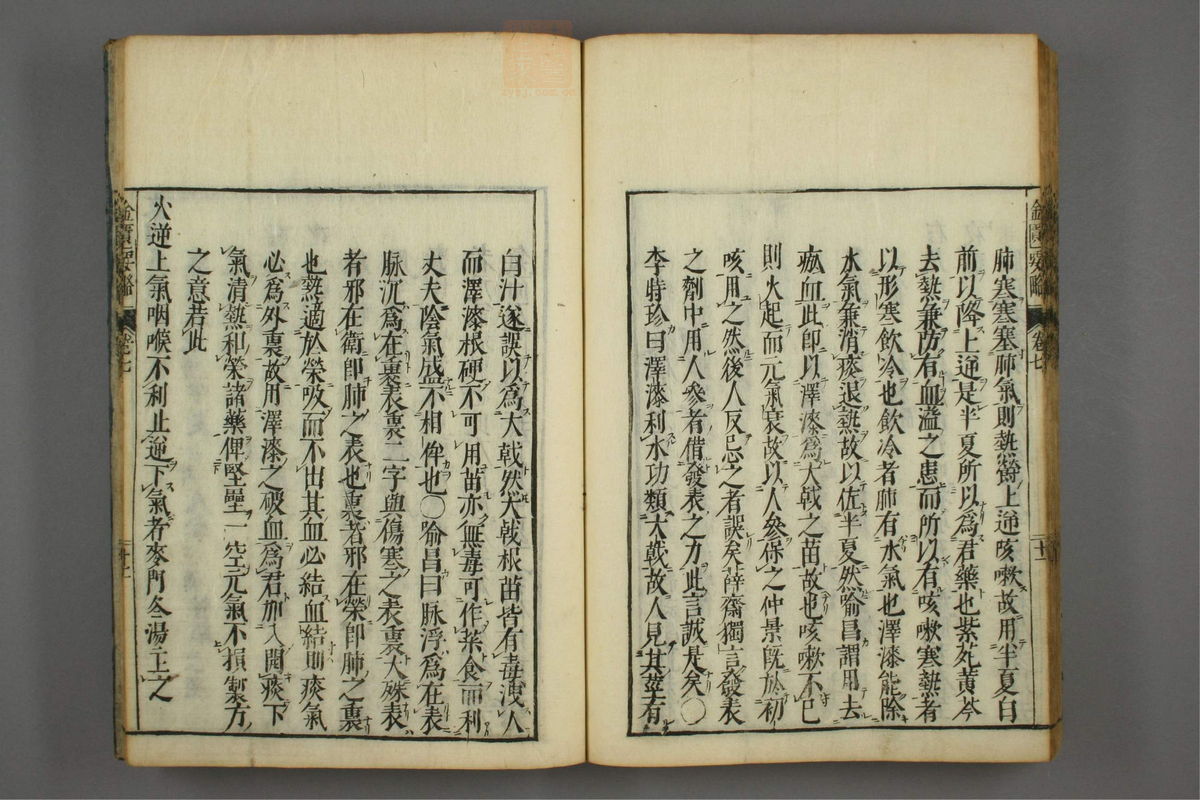 肺寒寒塞肺氣則熱鬱上逆咳嗽故用半夏白
前以降上逆是半夏所以爲君藥也紫菀黄芩
去熱兼防有血溢之患而所以有咳嗽寒熱者
以形寒飲冷也飲冷者肺有水氣也澤漆能除
水氣兼消痰退熱故以佐半夏然喻昌謂用去
瘀血此即以澤漆爲大戟之苗故也咳嗽不已
則火起而元氣衰故以人參保之仲景既於初
咳用之然後人反忌之者誤矣薛齋獨言發表
之劑中用人參者借發表之力此言誠是矣○
李時珍曰澤漆利水功類大戟故人見其莖有
金匱要略
卷七
十二
白汁遂誤以爲大戟然大戟根苗皆有毒洩人
而澤漆根硬不可用苗亦無毒可作菜食而利
丈夫陰氣盛不相侔也○喻昌曰脉浮爲在表
脉沉爲在裏表裏二字與傷寒之表裏大殊表
者邪在衛即肺之表也裏者邪在榮即肺之裏
也熱適於榮吸而不出其血必結血結則痰氣
必爲外裏故用澤漆之破血爲君加入開痰下
氣清熱和榮諸藥俾堅壘一空元氣不損製方
之意若此
火逆上氣咽喉不利止逆下氣者麥門冬湯主之
金匱要略
卷七